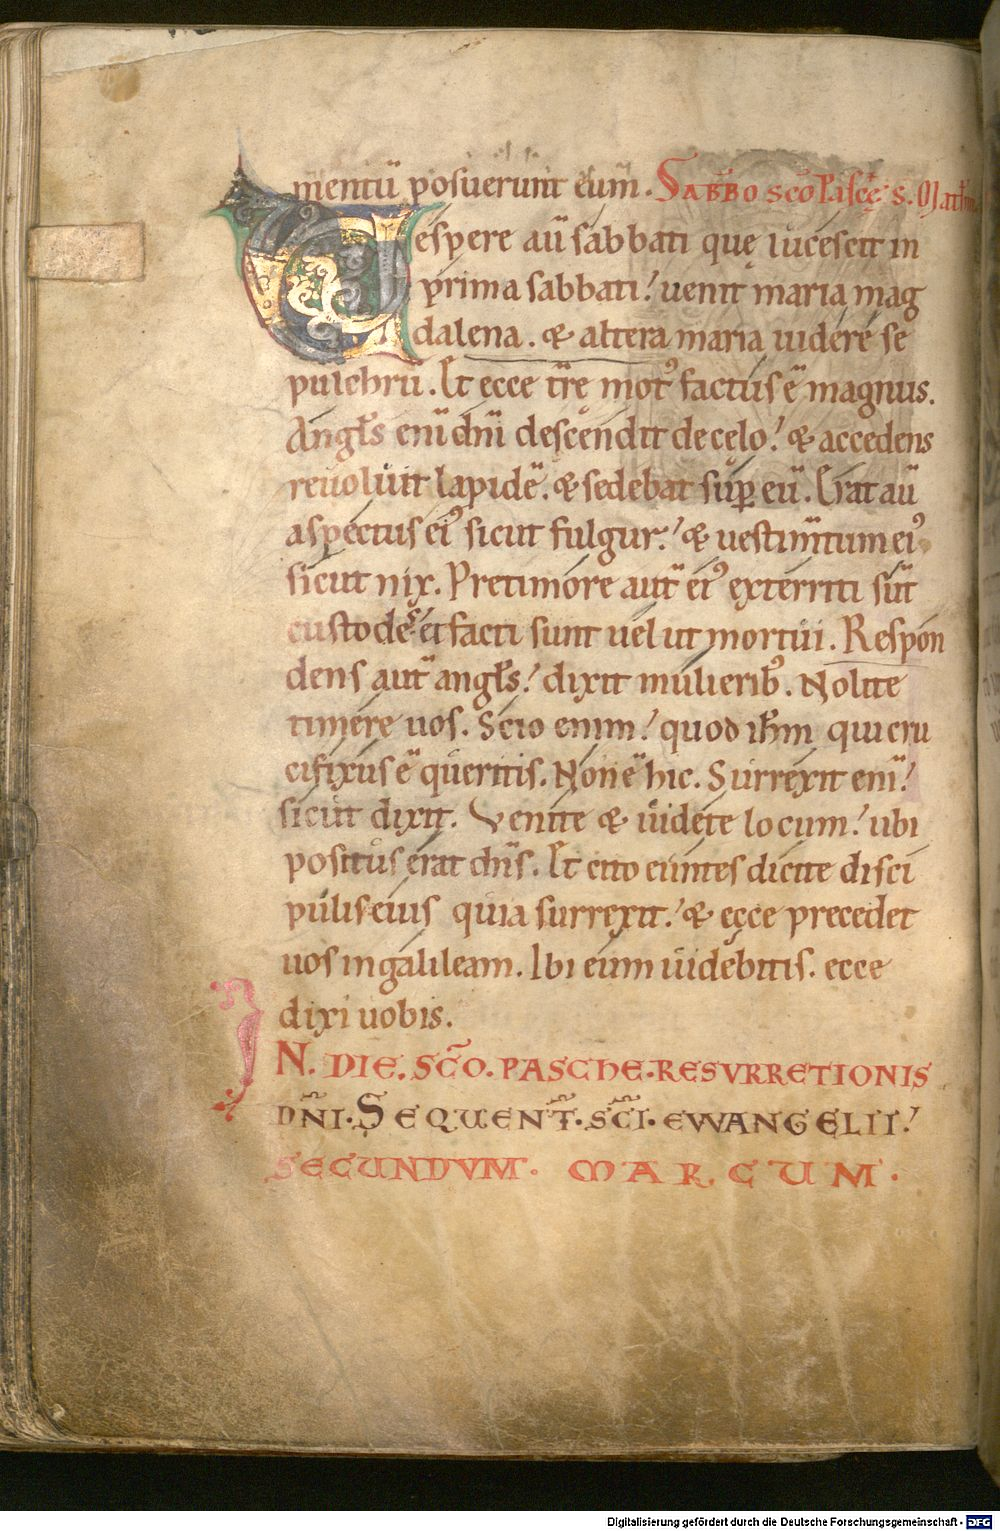 mentū posuerunt eum. SABBO SCO Pascę. S. Math
Vespere aū sabbati quę lucescit in
prima sabbati! uenit maria mag
dalena. & altera maria uidere se
pulchrū. Et ecce trę mot᾽ factus ē magnus.
Angl̄s enī dn̄i descendit de cęlo! & accedens
reuoluit lapidē. & sedebat sup̱ eū. Erat aū
aspectus ei᾽ sicut fulgur! & uestim̄tum ei᾽
sicut nix. Pre timore aut̄ ei᾽ exterriti sūt
custodes et facti sunt uelut mortui. Respon
dens aut̄ angl̄s! dixit mulierib᾽. Nolite
timere uos. Scio enim! quod ih̄m qui cru
cifixus ē quęritis. Non ē hic. Surrexit enī!
sicut dixit. Venite & uidete locum! ubi
positus erat dn̄s. Et cito euntes dicite disci
pulis eius quia surrexit! & ecce precedet
uos in galileam. Ibi eum uidebitis. ecce
dixi uobis.
IN. DIE. SC̄O. PASCHE. RESURRETIONIS
DN̄I. SEQUENT̄. SC̄I. EWANGELII!
SECUNDVM. MARCUM.
Digitalisierung gefördert durch die Deutsche Forschungsgemeinschaft - DFG